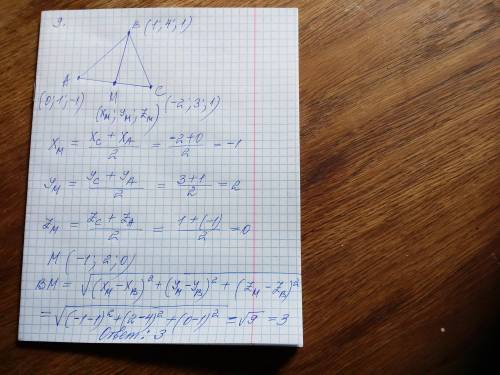 9.
B (1; 4; 1)
A
C
M
(0; 1; -1)
(-2; 3; 1)
(x_M; y_M; z_M)
x_M = (x_C + x_A)/2 = (-2+0)/2 = -1
y_M = (y_C + y_A)/2 = (3+1)/2 = 2
z_M = (z_C + z_A)/2 = (1+(-1))/2 = 0
M (-1; 2; 0)
BM = √((x_M - x_B)² + (y_M - y_B)² + (z_M - z_B)²)
= √((-1-1)² + (2-4)² + (0-1)²) = √9 = 3
Ответ: 3